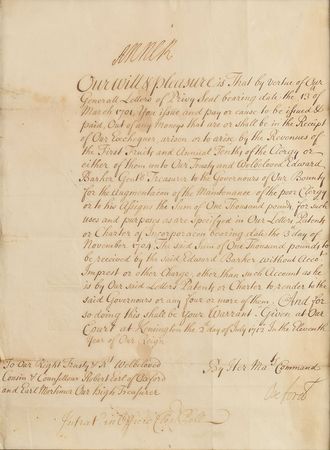 Anne R
Our will & pleasure is That by vertue of Our
Generall Letters of Privy Seal bearing date the 13th of
March 1701, You issue and pay or cause to be issued &
paid, Out of any Moneys that are or shall be in the Receipt
of Our Exchequer, arisen or to arise by the Revenues of
the First Fruits and Annual Tenths of the Clergy or
either of them unto Our Trusty and Welbeloved Edward
Barker Gent Treasurer to the Governours of Our Bounty
for the Augmentacon of the Maintenance of the poor Clergy
or to his Assignes the Sum of One Thousand pounds, for such
uses and purposes as are Specifyed in Our Letters Patents
or Charter of Incorporacon bearing date the 3d day of
November 1704. The said Sum of One Thousand pounds to
be received by the said Edward Barker without Accot
Imprest or other Charge, other than such Account as he
is by Our said Letters Patents or Charter to render to the
said Governours or any four or more of them. And for
so doing this shall be Your Warrant. Given at Our
Court at Kensington the 2d day of July 1712 In the Eleventh
Year of Our Reign
To Our Right Trusty & Rt Welbeloved
Cousin & Councellour Robert Earl of Oxford
and Earl Mortimer Our High Treasurer
By Her Mats Command
Oxford
Intrat in Officio Cleri